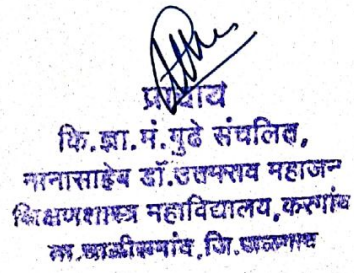 प्राचार्य
कि.ज्ञा.मं.गुढे संचलित,
नानासाहेब डॉ.उत्तमराव महाजन
शिक्षणशास्त्र महाविद्यालय,करगांव
ता.चाळीसगांव,जि.जळगाव